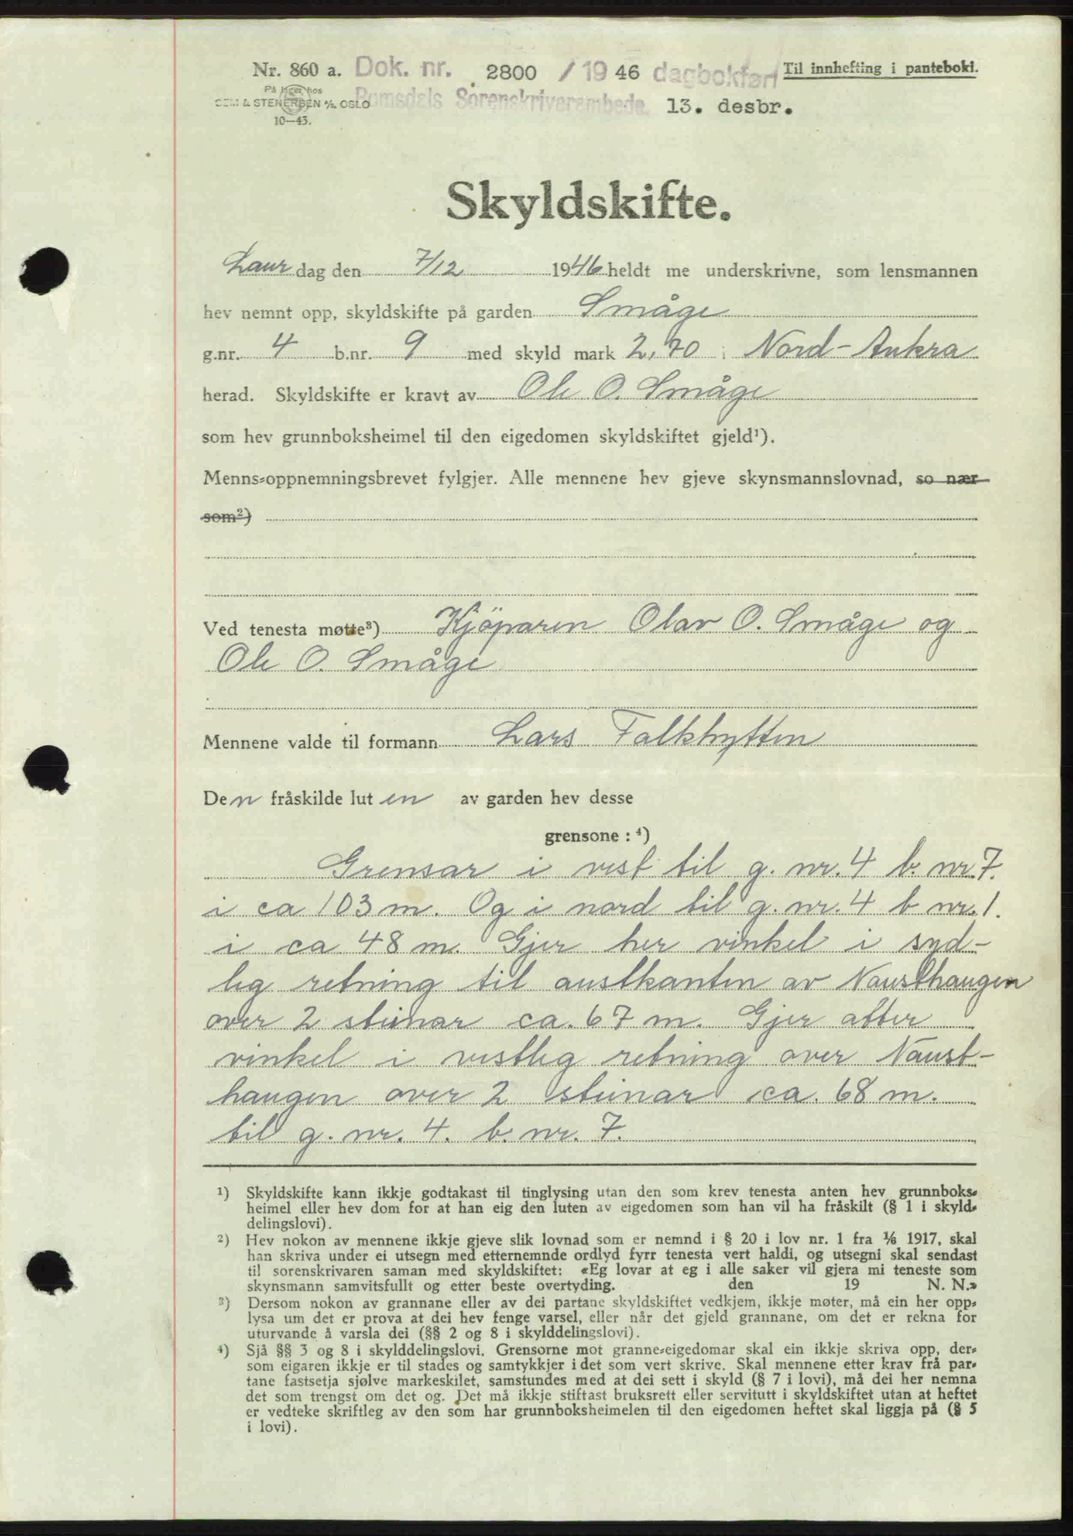 Nr. 860 a. Dok. nr. 2800 / 1946 dagbokført Til innhefting i pantebok.
På lager hos
SEM & STENERSEN A/S, OSLO Romsdals Sorenskriverembede. 13. desbr.
10—43.
Skyldskifte.
Laur dag den 7/12 1946 heldt me underskrivne, som lensmannen
hev nemnt opp, skyldskifte på garden Småge
g.nr. 4 b.nr. 9 med skyld mark 2,70 i Nord-Aukra
herad. Skyldskifte er kravt av Ole O. Småge
som hev grunnboksheimel til den eigedomen skyldskiftet gjeld¹).
Menns-oppnemningsbrevet fylgjer. Alle mennene hev gjeve skynsmannslovnad, so nær
som²)
Ved tenesta møtte³) Kjöparen Olav O. Småge og
Ole O. Småge
Mennene valde til formann Lars Falkhytten
Den fråskilde luten av garden hev desse
grensone : ⁴)
Grensar i vest til g. nr. 4 b. nr. 7.
i ca 103 m. Og i nord til g. nr. 4 b nr. 1.
i ca 48 m. Gjer her vinkel i syd-
leg retning til austkanten av Nausthaugen
over 2 steinar ca. 67 m. Gjer atter
vinkel i vestleg retning over Naust-
haugen over 2 steinar ca. 68 m.
til g. nr. 4. b. nr. 7.
¹) Skyldskifte kann ikkje godtakast til tinglysing utan den som krev tenesta anten hev grunnboks-
heimel eller hev dom for at han eig den luten av eigedomen som han vil ha fråskilt (§ 1 i skyld-
delingslovi).
²) Hev nokon av mennene ikkje gjeve slik lovnad som er nemnd i § 20 i lov nr. 1 fra 1/6 1917, skal
han skriva under ei utsegn med etternemnde ordlyd fyrr tenesta vert haldi, og utsegni skal sendast
til sorenskrivaren saman med skyldskiftet: «Eg lovar at eg i alle saker vil gjera mi teneste som
skynsmann samvitsfullt og etter beste overtyding. den 19 N. N.»
³) Dersom nokon av grannane eller av dei partane skyldskiftet vedkjem, ikkje møter, må ein her opp-
lysa um det er prova at dei hev fenge varsel, eller når det gjeld grannane, om det er rekna for
uturvande å varsla dei (§§ 2 og 8 i skylddelingslovi).
⁴) Sjå §§ 3 og 8 i skylddelingslovi. Grensorne mot granne-eigedomar skal ein ikkje skriva opp, der-
som eigaren ikkje er til stades og samtykkjer i det som vert skrive. Skal mennene etter krav frå par-
tane fastsetja sjølve markeskilet, samstundes med at dei sett i skyld (§ 7 i lovi), må dei her nemna
det som trengst om det og. Det må ikkje stiftast bruksrett eller servitutt i skyldskiftet utan at heftet
er vedteke skriftleg av den som har grunnboksheimelen til den eigedomen heftet skal liggja på (§ 5
i lovi).